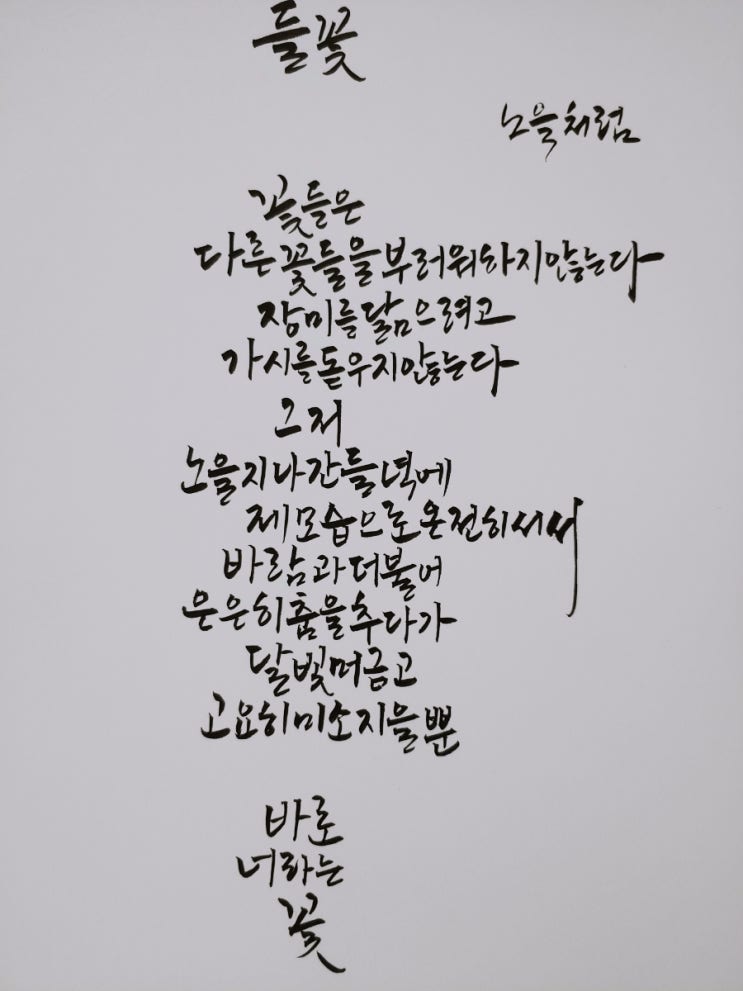 들꽃
노을처럼
꽃들은
다른 꽃들을 부러워하지 않는다
장미를 닮으려고
가시를 돋우지 않는다
그저
노을 지나간 들녘에
제 모습으로 온전히 서서
바람과 더불어
은은히 춤을 추다가
달빛 머금고
고요히 미소 지을 뿐
바로
너라는
꽃